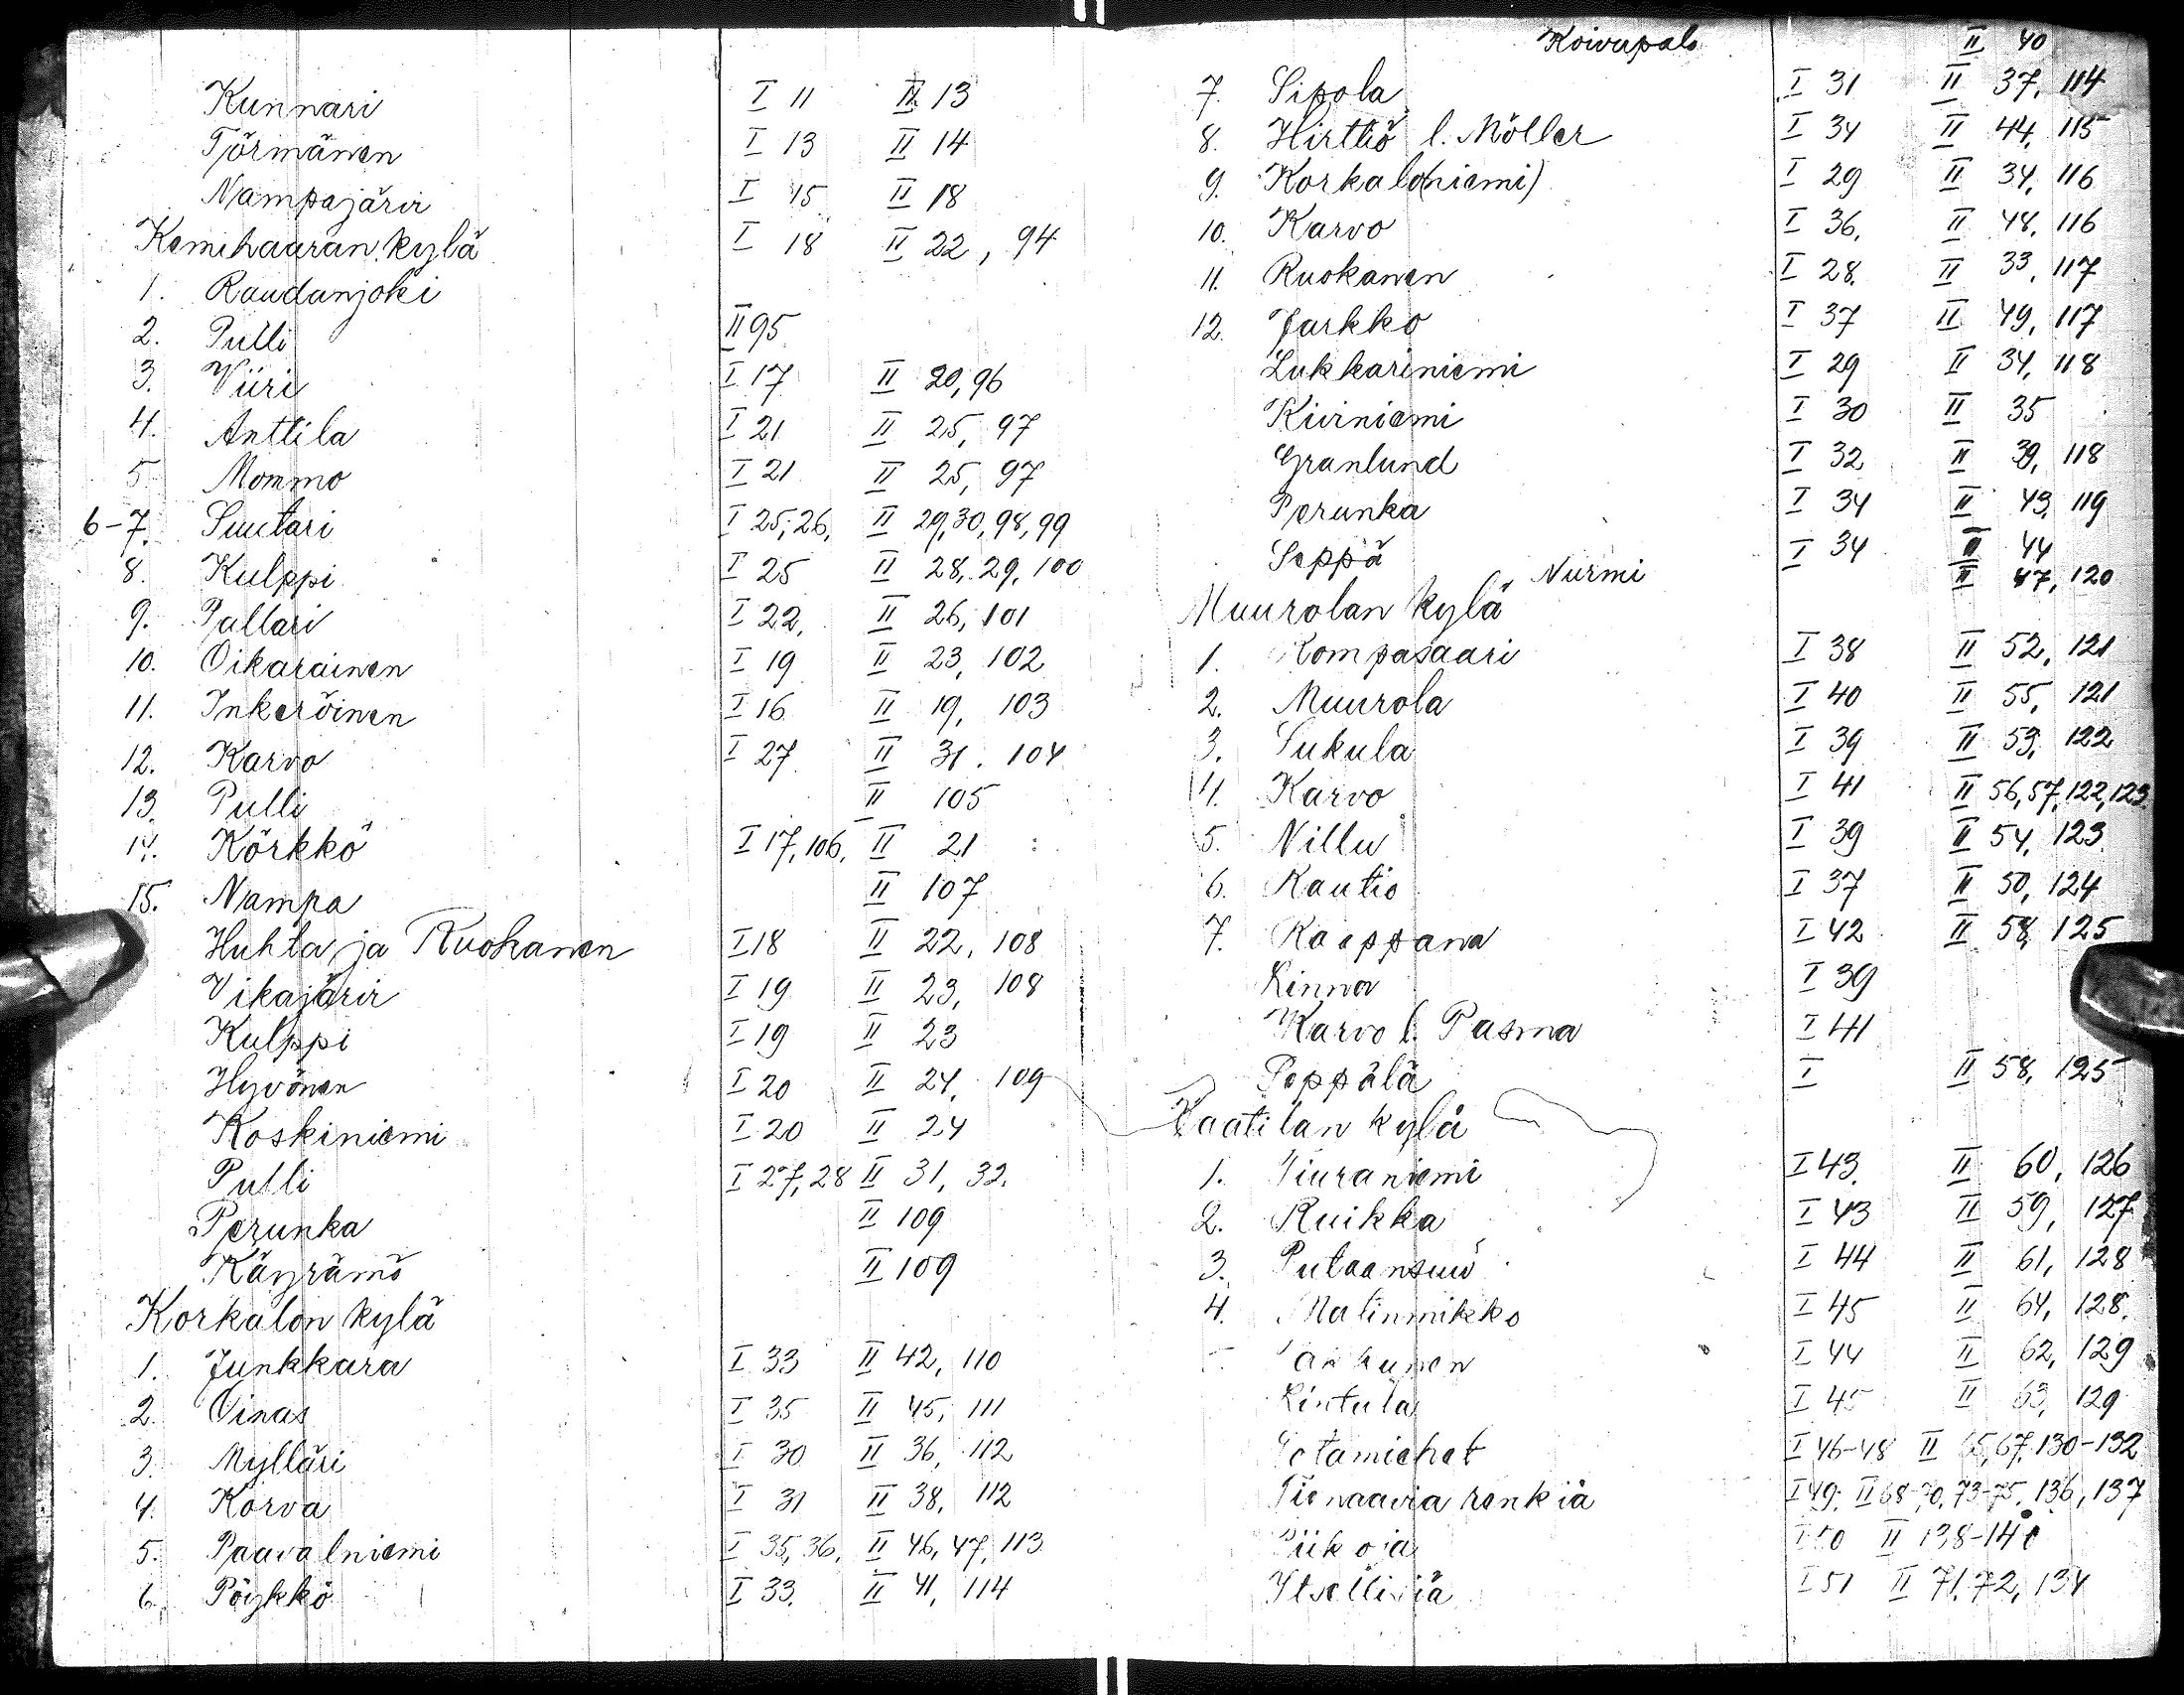 Kunnari I 11 II 13
Törmänen I 13 II 14
Nampajärvi I 15 II 18
Kemihaaran kylä I 18 II 22, 94
1. Raudanjoki
2. Pulli II 95
3. Viiri I 17 II 20, 96
4. Anttila I 21 II 25, 97
5. Mommo I 21 II 25, 97
6-7. Suutari I 25, 26, II 29, 30, 98, 99
8. Kulppi I 25 II 28, 29, 100
9. Pallari I 22, II 26, 101
10. Oikarainen I 19 II 23, 102
11. Inkeröinen I 16 II 19, 103
12. Karvo I 27 II 31. 104
13. Pulli II 105
14. Körkkö I 17, 106, II 21
15. Nampa II 107
Huhta ja Ruokanen I 18 II 22, 108
Vikajärvi I 19 II 23, 108
Kulppi I 19 II 23
Hyvönen I 20 II 24, 109
Koskiniemi I 20 II 24
Pulli I 27, 28 II 31, 32.
Perunka II 109
Käyrämö II 109
Korkalon kylä
1. Junkkara I 33 II 42, 110
2. Oinas I 35 II 45, 111
3. Mylläri I 30 II 36, 112
4. Korva I 31 II 38, 112
5. Paavalniemi I 35, 36, II 46, 47, 113
6. Pöykkö I 33. II 41, 114
Koivupalo II 40
7. Sipola I 31 II 37, 114
8. Hirttiö l. Möller I 34 II 44, 115
9. Korkalo(niemi) I 29 II 34, 116
10. Karvo I 36, II 48, 116
11. Ruokanen I 28. II 33, 117
12. Jarkko I 37 II 49, 117
Lukkariniemi I 29 II 34, 118
Kiviniemi I 30 II 35
Granlund I 32 II 39, 118
Perunka I 34 II 43, 119
Seppä I 34 II 44
Nurmi II 47, 120
Muurolan kylä
1. Kompasaari I 38 II 52, 121
2. Muurola I 40 II 55, 121
3. Sukula I 39 II 53, 122
4. Karvo I 41 II 56, 57, 122, 123
5. Nillu I 39 II 54, 123.
6. Rautio I 37 II 50, 124
7. Kaappana I 42 II 58, 125
Linna I 39
Karvo l. Pasma I 41
Poppälä I II 58, 125
Vaatilan kylä
1. Tiuraniemi I 43. II 60, 126
2. Ruikka I 43 II 59, 127
3. Putaansuu I 44 II 61, 128
4. Matinmikko I 45 II 64, 128.
I 44 II 62, 129
Lintula I 45 II 63, 129
Sotamiehet I 46-48 II 65, 67, 130-132
Tienaavia renkiä I 49. II 68-70, 73-75, 136, 137
Piikoja I 50 II 138-140
Itsellisiä I 51 II 71, 72, 134